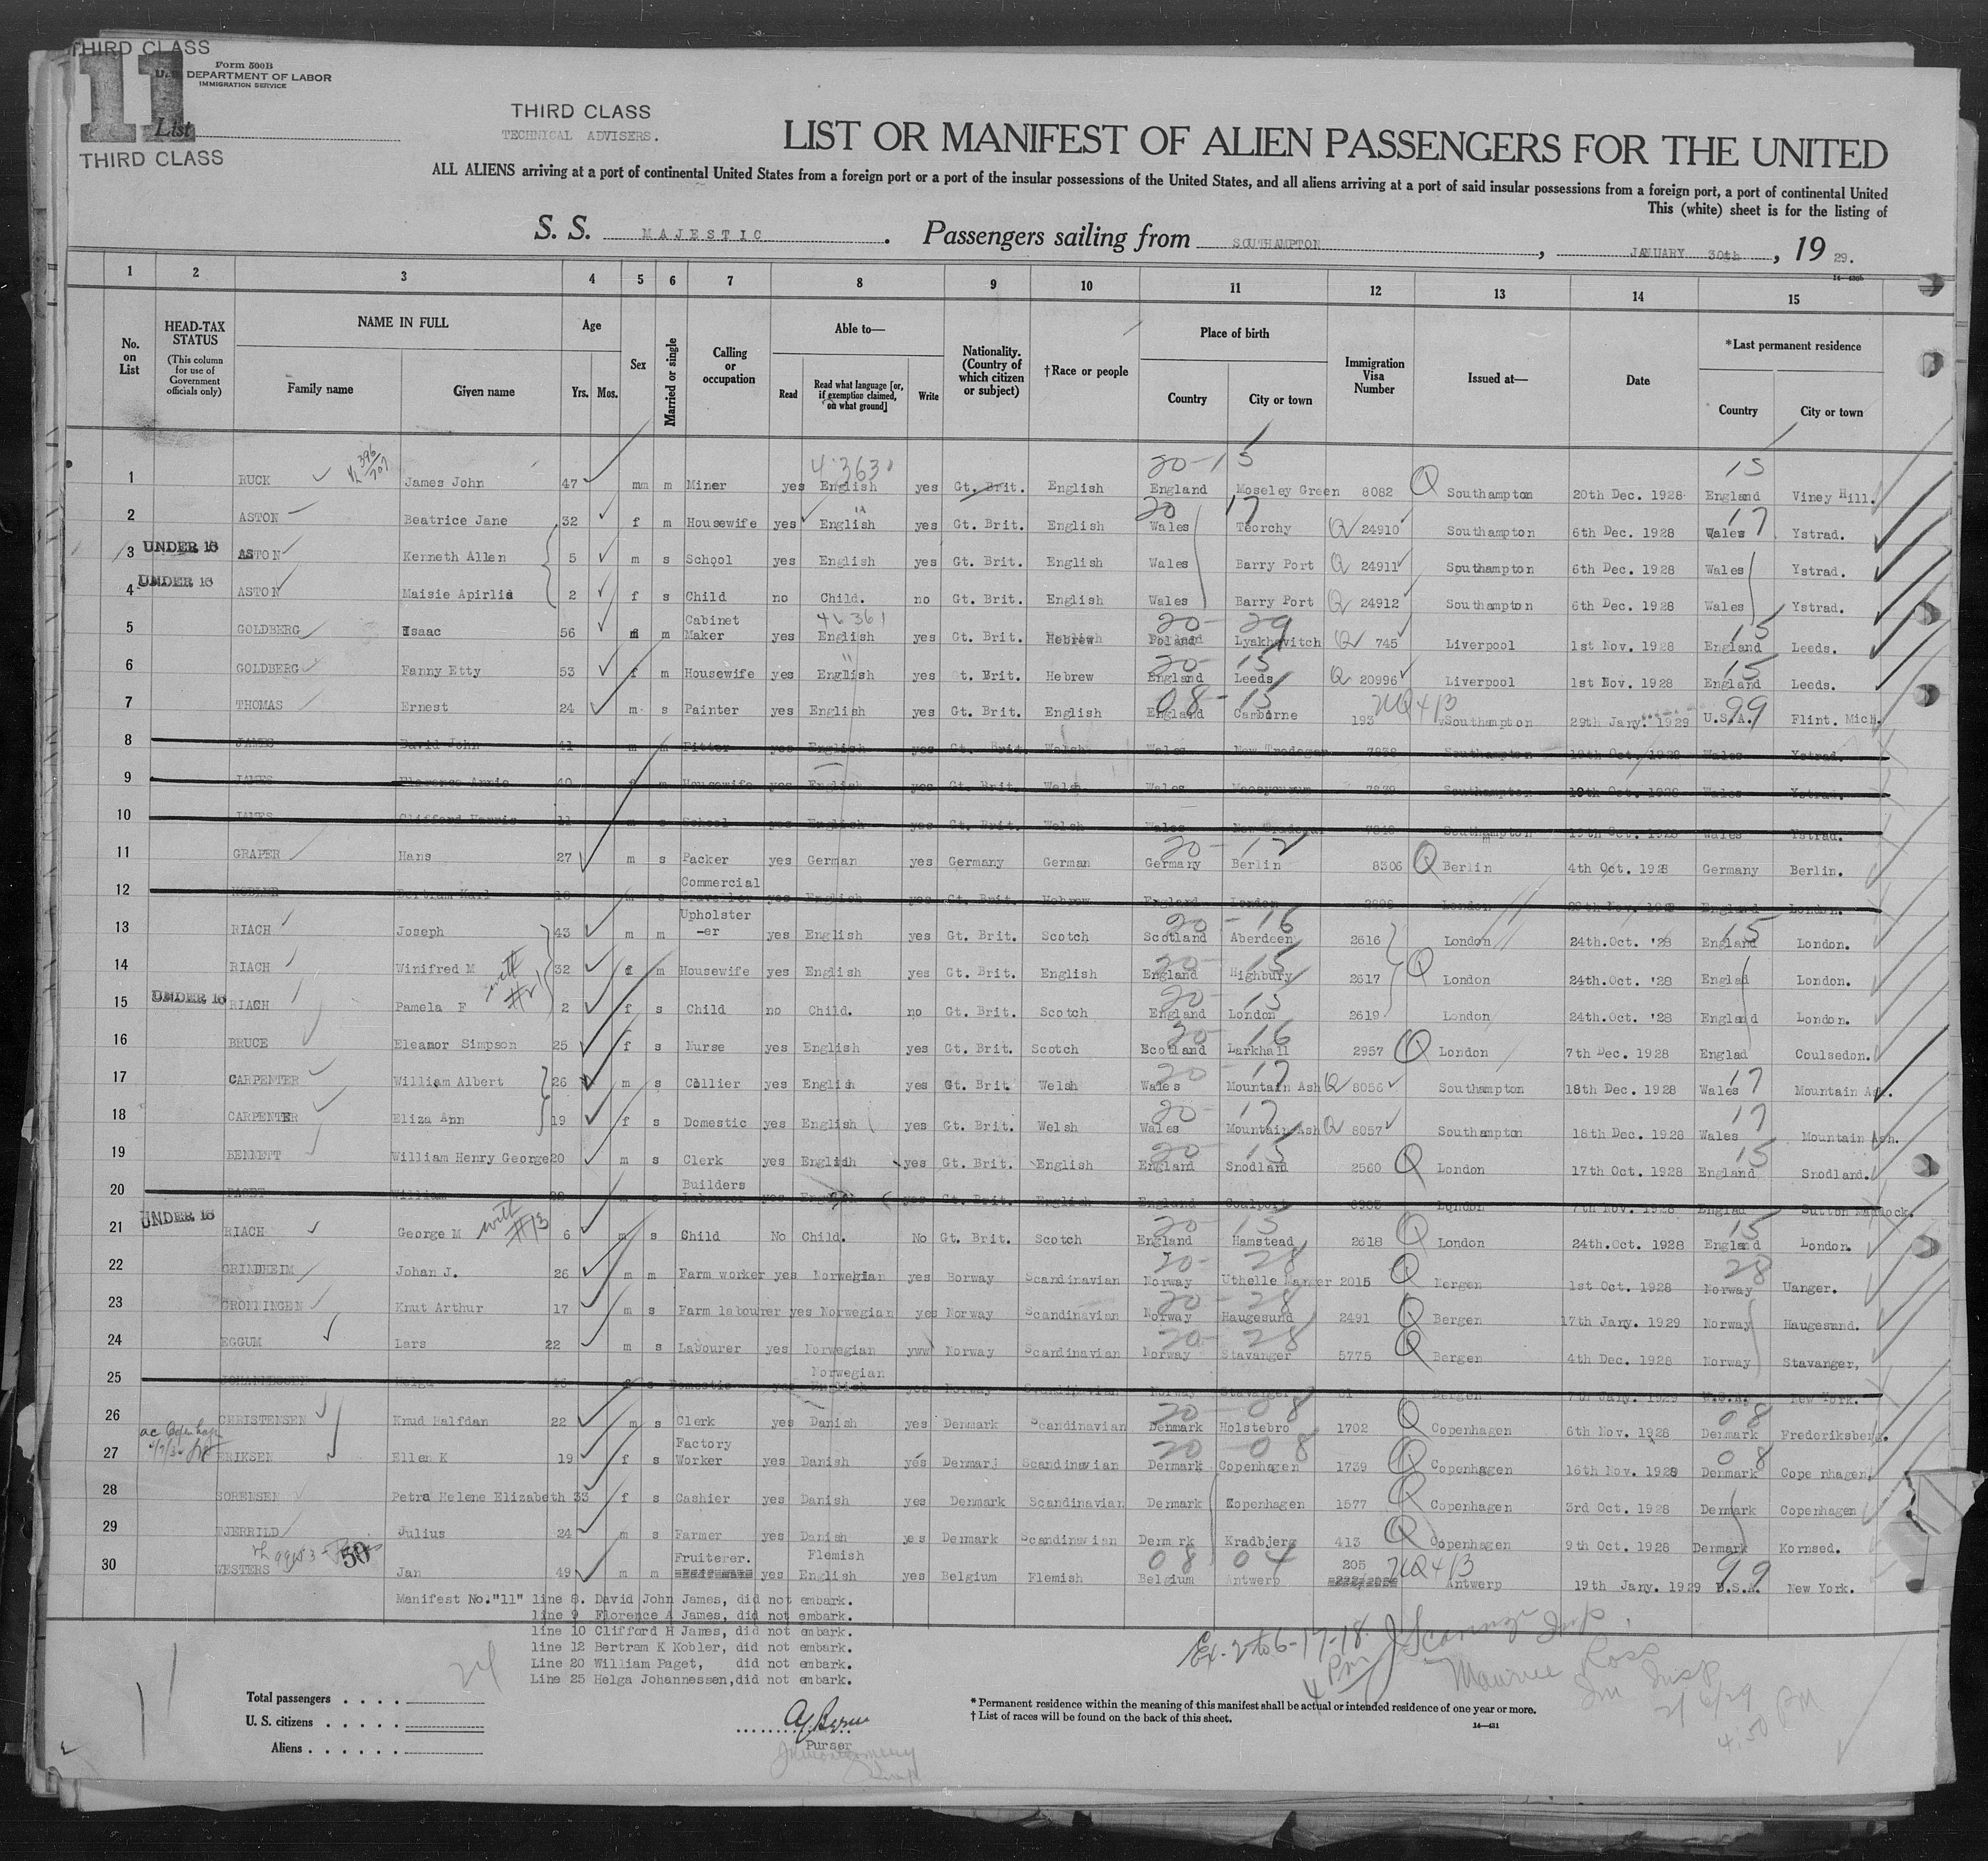 THIRD CLASS
11
Form 500B
U. S. DEPARTMENT OF LABOR
IMMIGRATION SERVICE
List
THIRD CLASS
THIRD CLASS
TECHNICAL ADVISERS.
LIST OR MANIFEST OF ALIEN PASSENGERS FOR THE UNITED
ALL ALIENS arriving at a port of continental United States from a foreign port or a port of the insular possessions of the United States, and all aliens arriving at a port of said insular possessions from a foreign port, a port of continental United
This (white) sheet is for the listing of
S. S. MAJESTIC. Passengers sailing from SOUTHAMPTON, JANUARY 30th, 19 29.
14—430b
1 2 3 4 5 6 7 8 9 10 11 12 13 14 15
No. on List
HEAD-TAX STATUS (This column for use of Government officials only)
NAME IN FULL Family name Given name
Age Yrs. Mos.
Sex
Married or single
Calling or occupation
Able to— Read Read what language [or, if exemption claimed, on what ground] Write
Nationality. (Country of which citizen or subject)
†Race or people
Place of birth Country City or town
Immigration Visa Number
Issued at—
Date
*Last permanent residence Country City or town
4.363 20-15 15
1 RUCK James John 47 mm m Miner yes English yes Gt. Brit. English England Moseley Green 8082 Q Southampton 20th Dec. 1928 England Viney Hill.
20 17 17
2 ASTON Beatrice Jane 32 f m Housewife yes English yes Gt. Brit. English Wales Teorchy Q 24910 Southampton 6th Dec. 1928 Wales Ystrad.
3 UNDER 16 ASTON Kenneth Allen 5 m s School yes English yes Gt. Brit. English Wales Barry Port Q 24911 Southampton 6th Dec. 1928 Wales Ystrad.
4 UNDER 16 ASTON Maisie Apirlia 2 f s Child no Child. no Gt. Brit. English Wales Barry Port Q 24912 Southampton 6th Dec. 1928 Wales Ystrad.
20- 29 15
5 GOLDBERG Isaac 56 m m Cabinet Maker yes English yes Gt. Brit. Hebrew Poland Lyakhovitch Q 745 Liverpool 1st Nov. 1928 England Leeds.
20- 15 15
6 GOLDBERG Fanny Etty 53 f m Housewife yes English yes Gt. Brit. Hebrew England Leeds Q 20996 Liverpool 1st Nov. 1928 England Leeds.
08-15 NQ413 99
7 THOMAS Ernest 24 m s Painter yes English yes Gt. Brit. English England Camborne 193 Southampton 29th Jany. 1929 U.S.A. Flint. Mich.
8 JAMES David John 41 m m Fitter yes English yes Gt. Brit. Welsh Wales New Tredegar 7838 Southampton 19th Oct. 1928 Wales Ystrad.
9 JAMES Florence Annie 40 f m Housewife yes English yes Gt. Brit. Welsh Wales 7839 Southampton 19th Oct. 1928 Wales Ystrad.
10 JAMES Clifford Harris 11 m s School yes English yes Gt. Brit. Welsh Wales New Tredegar 7840 Southampton 19th Oct. 1928 Wales Ystrad.
20- 12
11 GRAPER Hans 27 m s Packer yes German yes Germany German Germany Berlin 8306 Q Berlin 4th Oct. 1928 Germany Berlin.
12 KOBLER Bertram Karl 18 m s Commercial Traveller yes English yes Gt. Brit. Hebrew England London London Nov. 1928 England London.
20-16 15
13 RIACH Joseph 43 m m Upholster-er yes English yes Gt. Brit. Scotch Scotland Aberdeen 2616 London 24th.Oct. '28 England London.
20- 15
14 RIACH Winifred M with #21 32 f m Housewife yes English yes Gt. Brit. English England Highbury 2617 Q London 24th.Oct. '28 Englad London.
20- 15
15 UNDER 16 RIACH Pamela F 2 f s Child no Child. no Gt. Brit. Scotch England London 2619 London 24th.Oct. '28 England London.
20- 16
16 BRUCE Eleanor Simpson 25 f s Nurse yes English yes Gt. Brit. Scotch Ecotland Larkhall 2957 Q London 7th Dec. 1928 Englad Coulsedon.
20 17 17
17 CARPENTER William Albert 26 m s Collier yes English yes Gt. Brit Welsh Wales Mountain Ash Q 8056 Southampton 18th Dec. 1928 Wales Mountain Ash.
20- 17 17
18 CARPENTER Eliza Ann 19 f s Domestic yes English yes Gt. Brit. Welsh Wales Mountain Ash Q 8057 Southampton 18th Dec. 1928 Wales Mountain Ash.
20 15 15
19 BENNETT William Henry George 20 m s Clerk yes English yes Gt. Brit. English England Snodland 2560 Q London 17th Oct. 1928 England Snodland.
20 PAGET William 28 m s Builders Labourer yes English yes Gt. Brit. English England London 7th Nov. 1928 Englad Sutton Maddock.
20- 15 15
21 UNDER 16 RIACH George M with #13 6 m s Child No Child. No Gt. Brit. Scotch England Hamstead 2618 Q London 24th.Oct. 1928 England London.
20- 28 28
22 GRINDHEIM Johan J. 26 m m Farm worker yes Norwegian yes Borway Scandinavian Norway Uthelle Manger 2015 Q Bergen 1st Oct. 1928 Norway Uanger.
20-28
23 GRONNINGEN Knut Arthur 17 m s Farm labourer yes Norwegian yes Norway Scandinavian Norway Haugesund 2491 Q Bergen 17th Jany. 1929 Norway Haugesund.
20-28
24 EGGUM Lars 22 m s Labourer yes Norwegian yww Norway Scandinavian Norway Stavanger 5775 Q Bergen 4th Dec. 1928 Norway Stavanger,
25 JOHANNESSEN Helga f s Domestic yes Norwegian English yes Norway Scandinavian Norway Stavanger 61 Bergen 7th Jany. 1929 U.S.A. New York.
20-08 08
26 CHRISTENSEN Knud Halfdan 22 m s Clerk yes Danish yes Denmark Scandinavian Denmark Holstebro 1702 Q Copenhagen 6th Nov. 1928 Denmark Frederiksberg.
20-08 08
27 ERIKSEN Ellen K 19 f s Factory Worker yes Danish yes Denmarj Scandinavian Denmark Copenhagen 1739 Q Copenhagen 16th Nov. 1928 Denmark Cope nhagen.
28 SORENSEN Petra Helene Elizabeth 33 f s Cashier yes Danish yes Denmark Scandinavian Denmark Kopenhagen 1577 Q Copenhagen 3rd Oct. 1928 Denmark Copenhagen
29 TJERRILD Julius 24 m s Farmer yes Danish yes Denmark Scandinavian Denm rk Kradbjerg 413 Q Copenhagen 9th Oct. 1928 Denmark Kornsed.
50 08 04 NQ413 99
30 WESTERS Jan 49 m m Fruiterer. yes Flemish English yes Belgium Flemish Belgium Antwerp 205 Antwerp 19th Jany. 1929 U.S.A. New York.
Manifest No."11" line 8. David John James, did not embark.
line 9 Florence A James, did not embark.
line 10 Clifford H James, did not embark.
line 12 Bertram K Kobler, did not embark.
Line 20 William Paget, did not embark.
Line 25 Helga Johannessen, did not embark.
24
Ex. 2 to 6-17-18.
4 PM
Maurice Ross
Im Insp
2/6/29
4.50 PM
Total passengers . . . .
U. S. citizens . . . . .
Aliens . . . . . .
Purser
* Permanent residence within the meaning of this manifest shall be actual or intended residence of one year or more.
† List of races will be found on the back of this sheet.
14—431